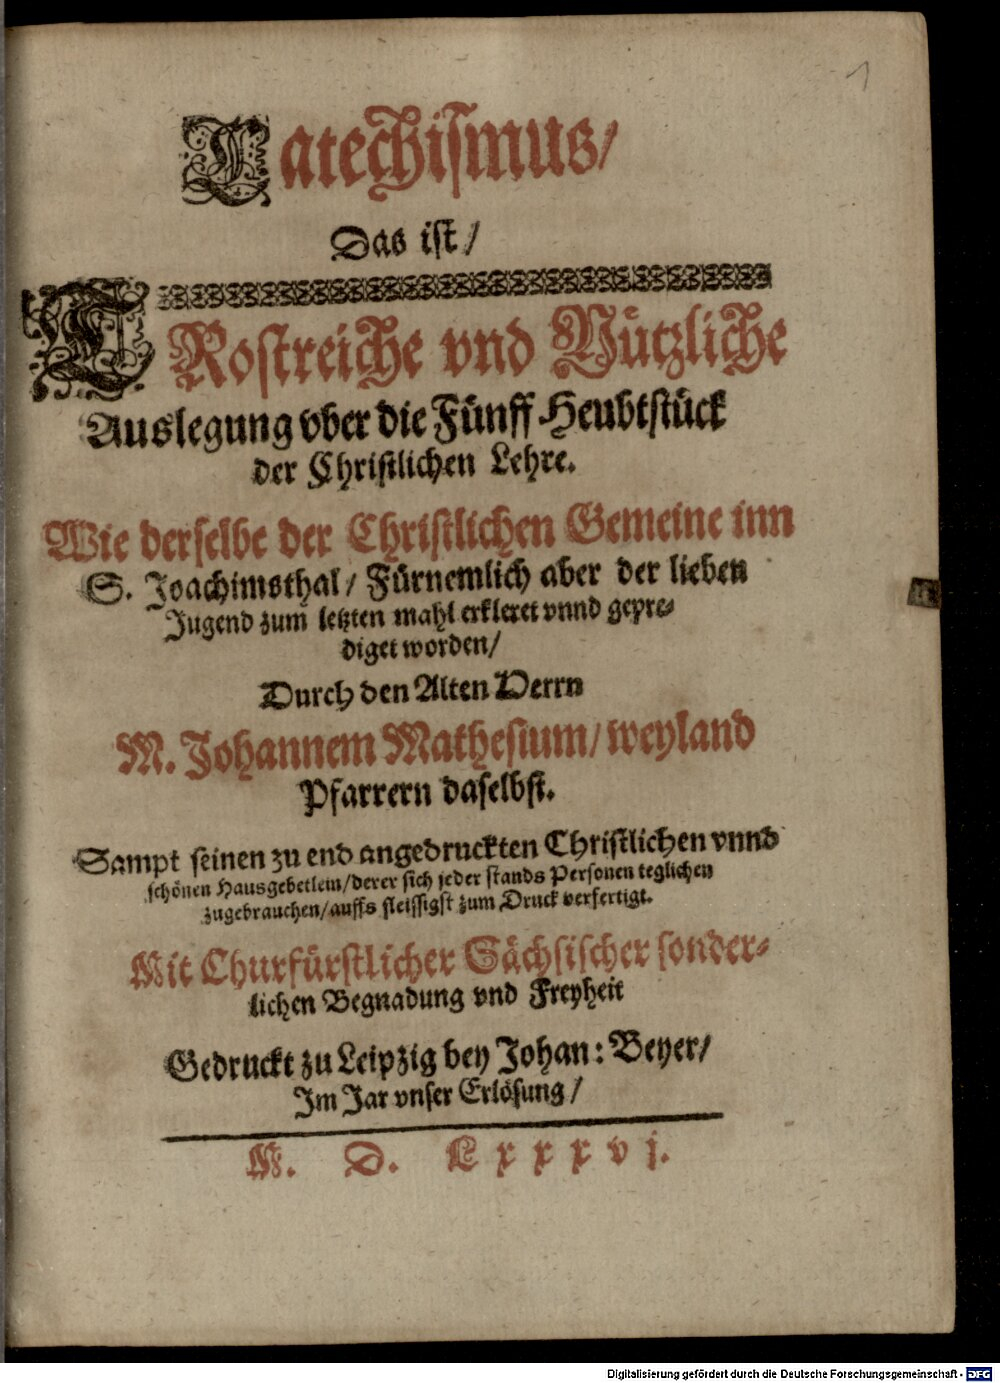 1
Catechismus/
Das ist/
TRostreiche vnd Nützliche
Auslegung vber die Fünff Heubtstück
der Christlichen Lehre.
Wie derselbe der Christlichen Gemeine inn
S. Joachimsthal/ Fürnemlich aber der lieben
Jugend zum letzten mahl erkleret vnnd gepre-
diget worden/
Durch den Alten Herrn
M. Johannem Mathesium/ weyland
Pfarrern daselbst.
Sampt seinen zu end angedruckten Christlichen vnnd
schönen Hausgebetlein/ derer sich jeder stands Personen teglichen
zugebrauchen/ auffs fleissigst zum Druck verfertigt.
Mit Churfürstlicher Sächsischer sonder-
lichen Begnadung vnd Freyheit
Gedruckt zu Leipzig bey Johan: Beyer/
Im Jar vnser Erlösung/
M. D. Lxxxvj.
Digitalisierung gefördert durch die Deutsche Forschungsgemeinschaft - DFG